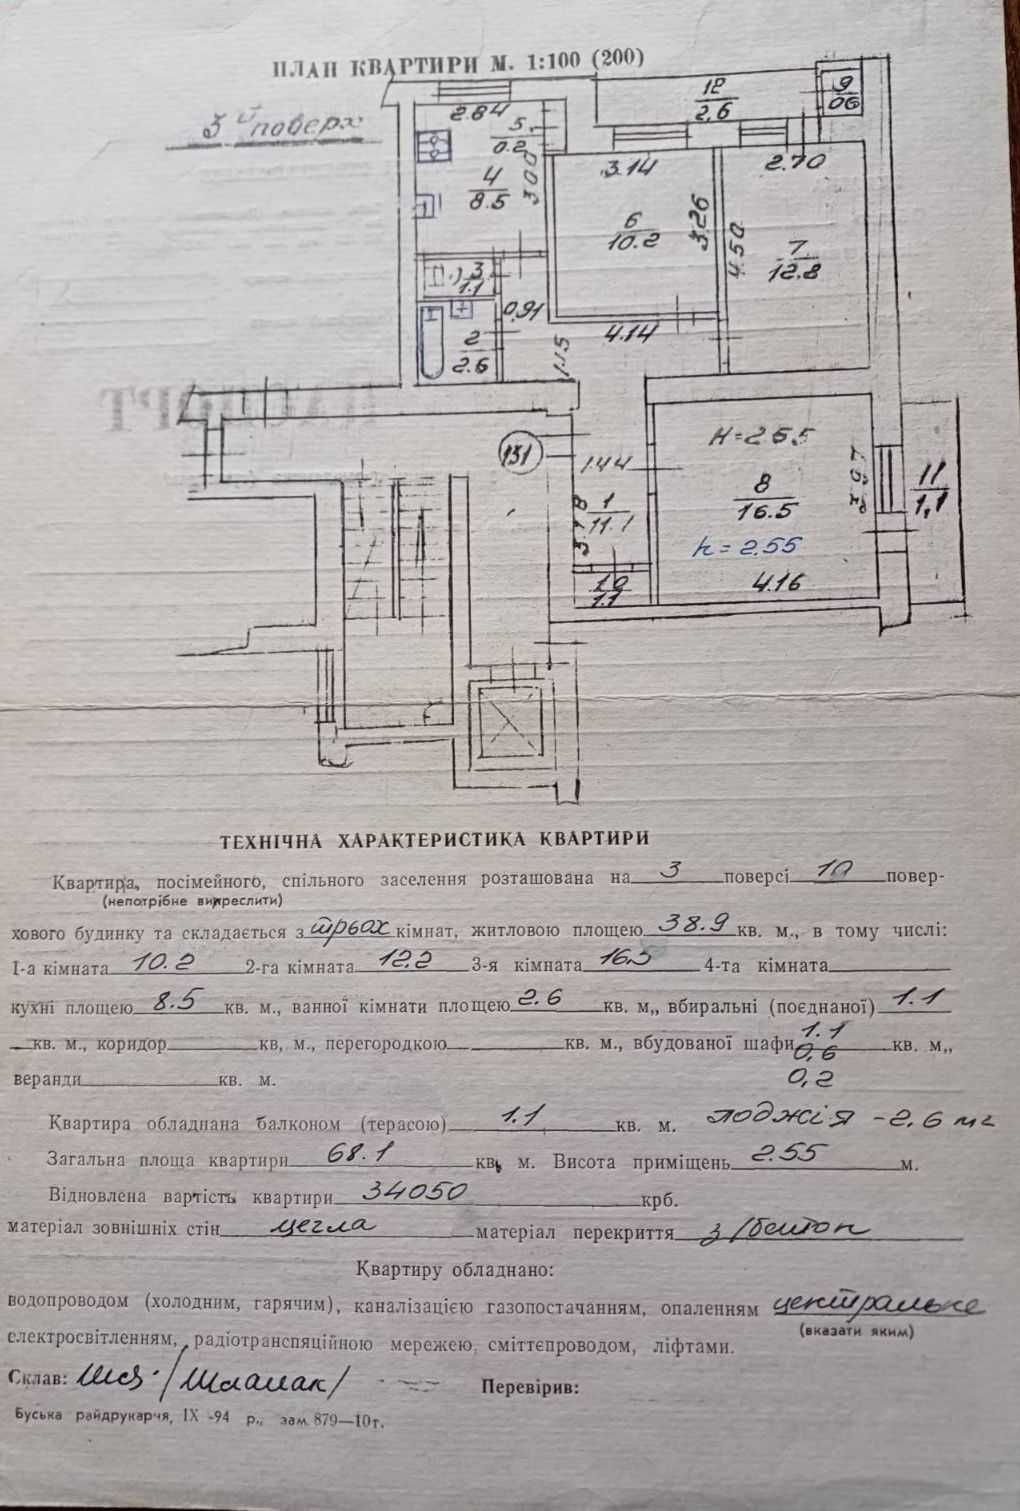 ПЛАН КВАРТИРИ М. 1:100 (200)
3й поверх
2.84
5
0.2
4
8.5
3.00
12
2.6
9
06
3.14
2.70
6
10.2
3.26
4.50
7
12.8
3
1.1
0.91
2
2.6
4.14
1.15
151
H=2.55
1.44
8
16.5
3.97
11
1,1
3.78
1
11.1
h=2.55
10
1.1
4.16
ТЕХНІЧНА ХАРАКТЕРИСТИКА КВАРТИРИ
Квартира, посімейного, спільного заселення розташована на 3 поверсі 10 повер-
(непотрібне викреслити)
хового будинку та складається з трьох кімнат, житловою площею 38.9 кв. м., в тому числі:
І-а кімната 10.2 2-га кімната 12.2 3-я кімната 16.5 4-та кімната
кухні площею 8.5 кв. м., ванної кімнати площею 2.6 кв. м,, вбиральні (поєднаної) 1.1
кв. м., коридор кв, м., перегородкою кв. м., вбудованої шафи 1.1 0,6 кв. м,,
веранди кв. м. 0,2
Квартира обладнана балконом (терасою) 1.1 кв. м. лоджія -2.6 м2
Загальна площа квартири 68.1 кв, м. Висота приміщень 2.55 м.
Відновлена вартість квартири 34050 крб.
матеріал зовнішніх стін цегла матеріал перекриття з/бетон
Квартиру обладнано:
водопроводом (холодним, гарячим), каналізацією газопостачанням, опаленням центральне
(вказати яким)
електросвітленням, радіотранспяційною мережею, сміттєпроводом, ліфтами.
Склав: Перевірив:
Буська райдрукарчя, ІХ -94 р., зам. 879—10т.